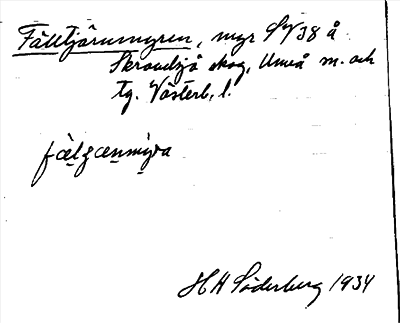 Fälltjärnmyren, myr SV 38 å
Skravelsjö skog, Umeå m. och
tg. Västerb. l.
fælʒænmýra
H H Söderberg 1934